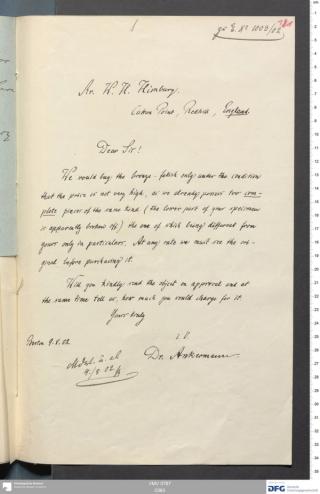 zu E. No 1003/02
Mr. W. H. Himbury.
Point, Redhill, England.
Dear Sir!
We would buy the bronze-fetish only under the condition
that the price is not very high, as we already possess two com-
plete pieces of the same kind (the lower part of your specimen
is apparently broken off) the one of which being different from
yours only in particulars. At any rate we must see the ori-
ginal before purchasing it.
Will you kindly send the object on approval and at
the same time tell us, how much you would charge for it.
Yours truly
Berlin 9.8.02.
Dr. Ankermann.
9./8 02
DFG